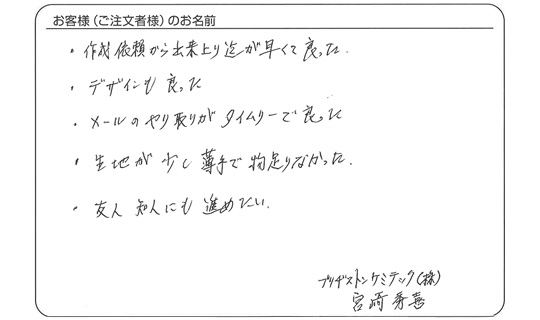 お客様（ご注文者様）のお名前
・作成依頼から出来上り迄が早くて良った.
・デザインも良った
・メールのやり取りがタイムリーで良った
・生地が少し薄手で物足りなかった.
・友人 知人にも進めたい.
ブリヂストンケミテック(株)
宮崎秀喜